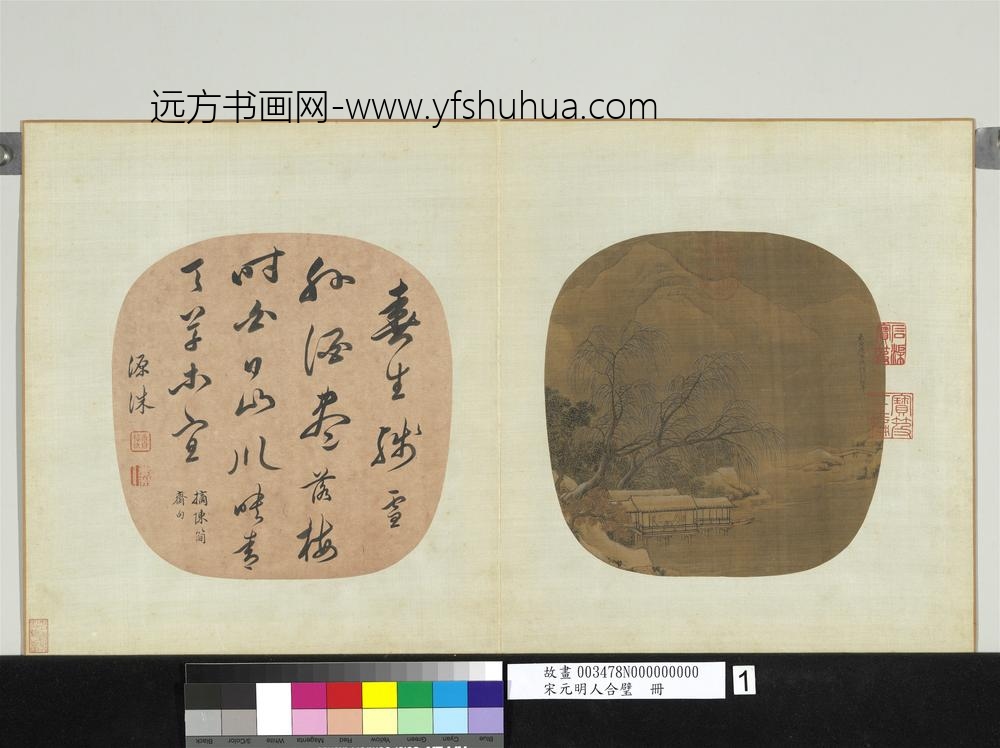 远方书画网-www.yfshuhua.com
春生殘雪
外酒盡落梅
時白日山川映青
天草木宜
摘陳簡
齋句
源洙
故畫 003478N000000000
宋元明人合璧 冊
1
Blue Cyan Green Yellow Red Magenta White 3/Color Black